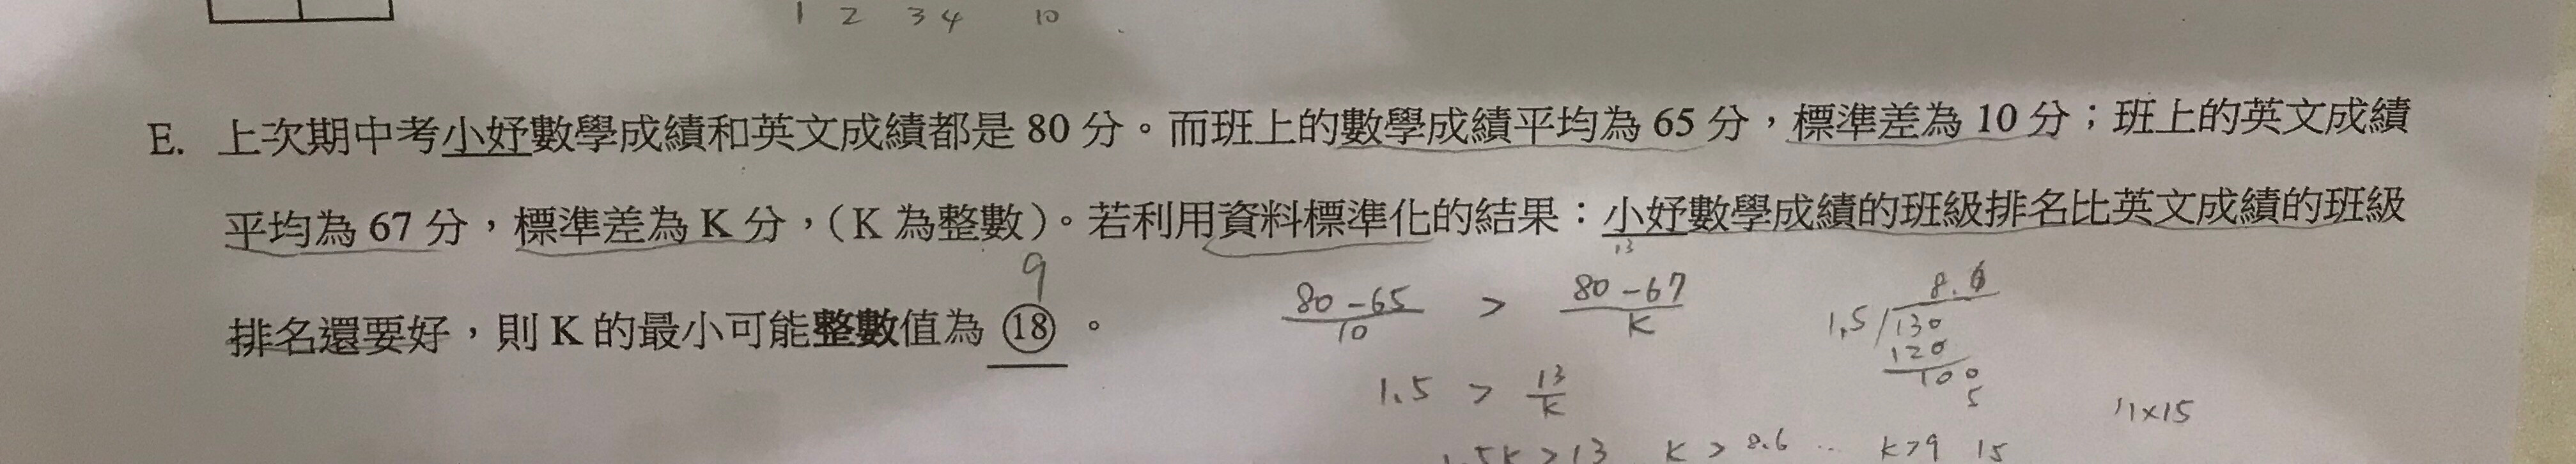 1 2 3 4 10
E. 上次期中考小妤數學成績和英文成績都是 80 分。而班上的數學成績平均為 65 分，標準差為 10 分；班上的英文成績
平均為 67 分，標準差為 K 分，（K 為整數）。若利用資料標準化的結果：小妤數學成績的班級排名比英文成績的班級
13
9
排名還要好，則 K 的最小可能整數值為 ⑱ 。
80-65/10 > 80-67/K
8.6
1.5/130
120
100
5
1.5 > 13/K
11×15
1.5K>13 K>8.6 ... K>9 15